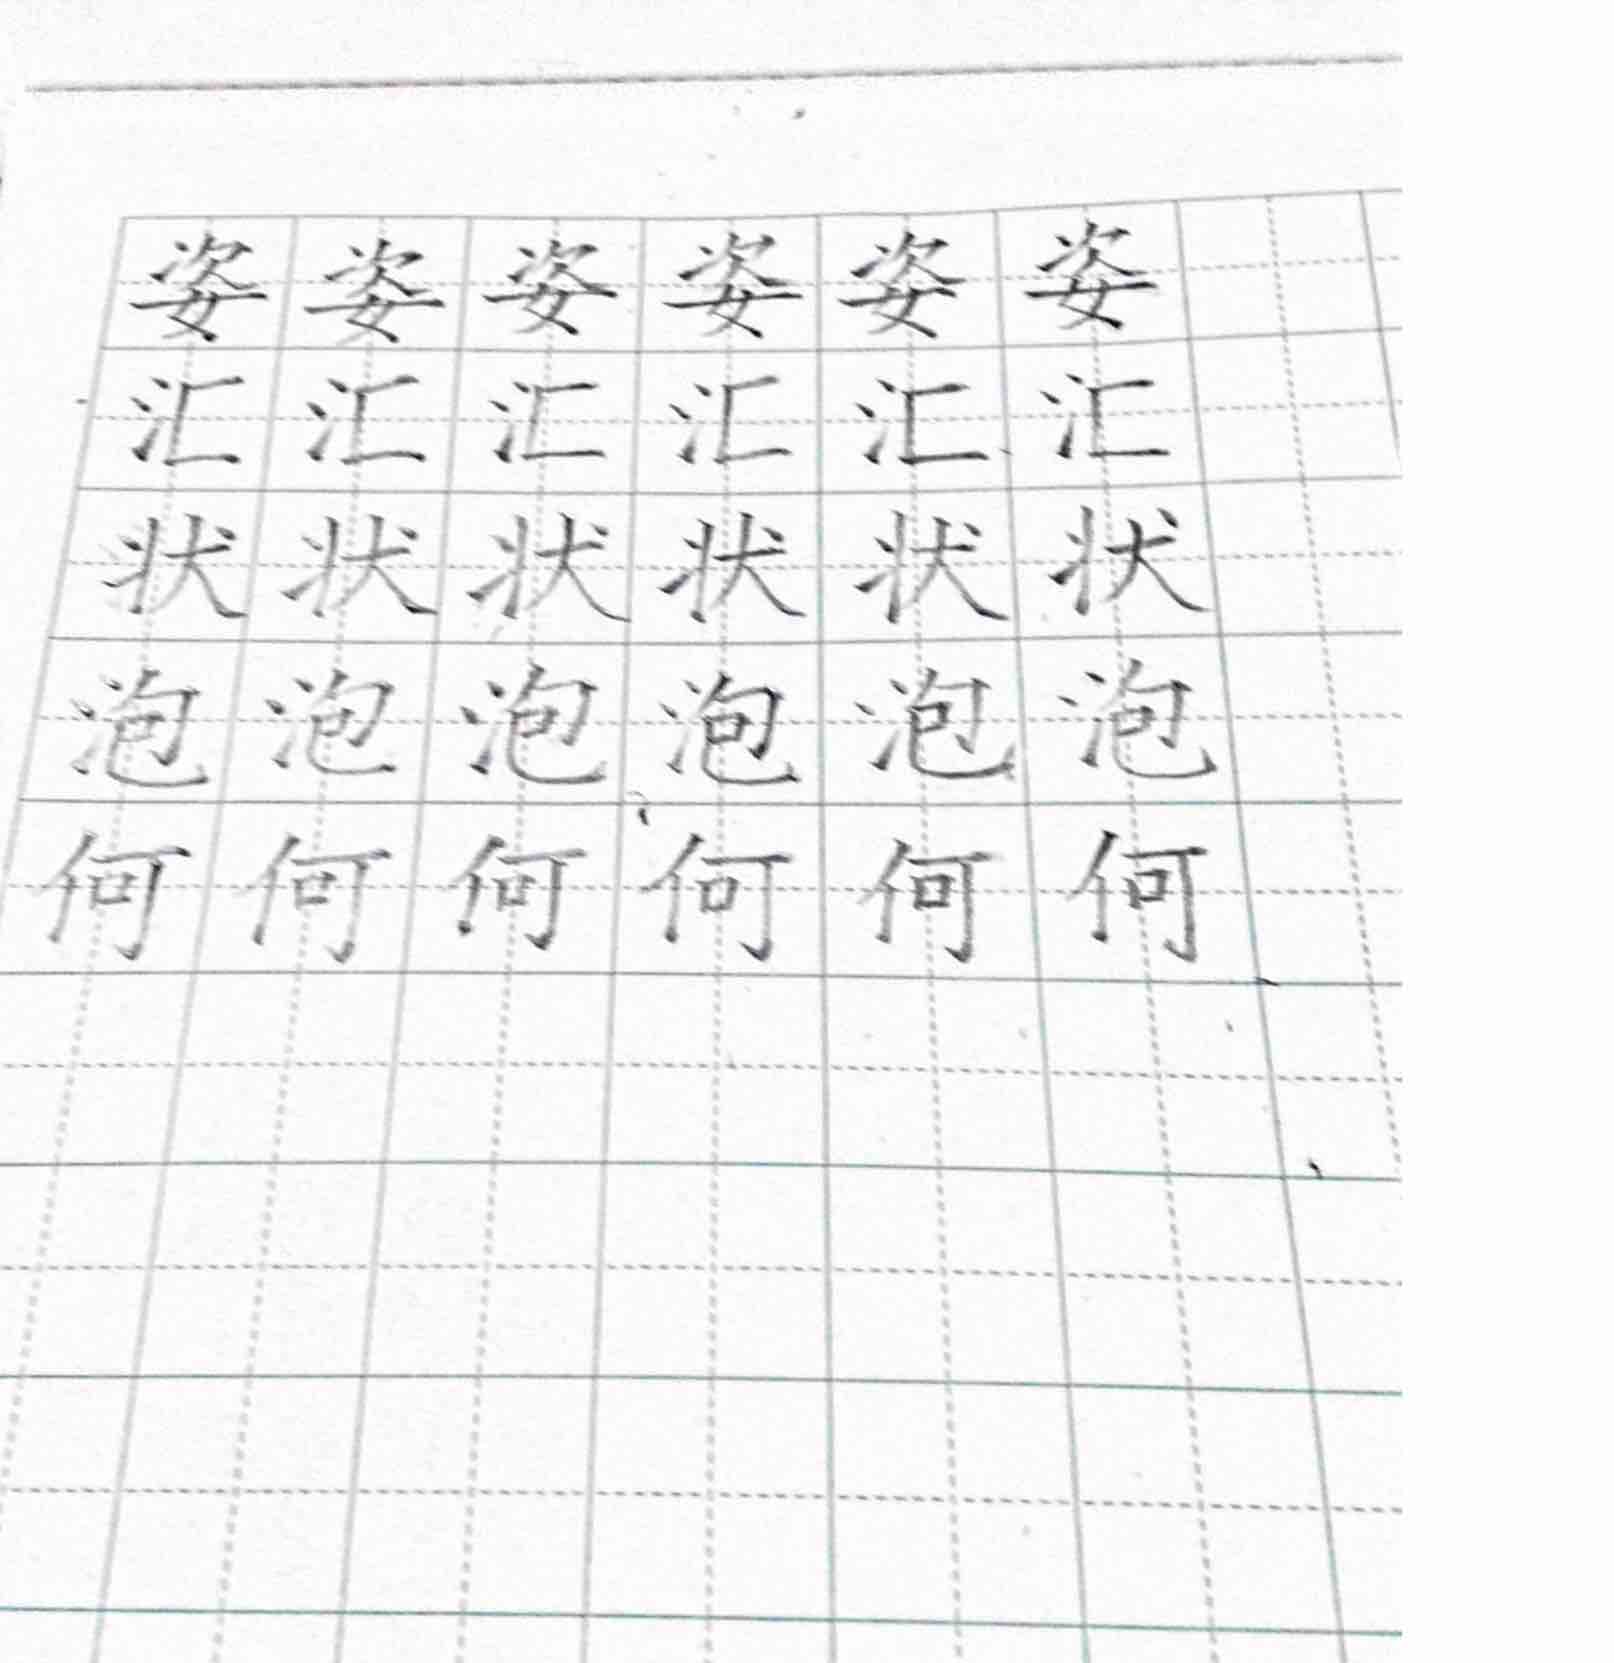 姿姿姿姿姿姿
汇汇汇汇汇汇
状状状状状状
泡泡泡泡泡泡
何何何何何何